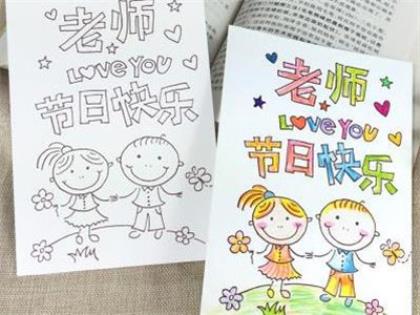 老师
LOVE YOU
节日快乐
老师
LOVE YOU
节日快乐